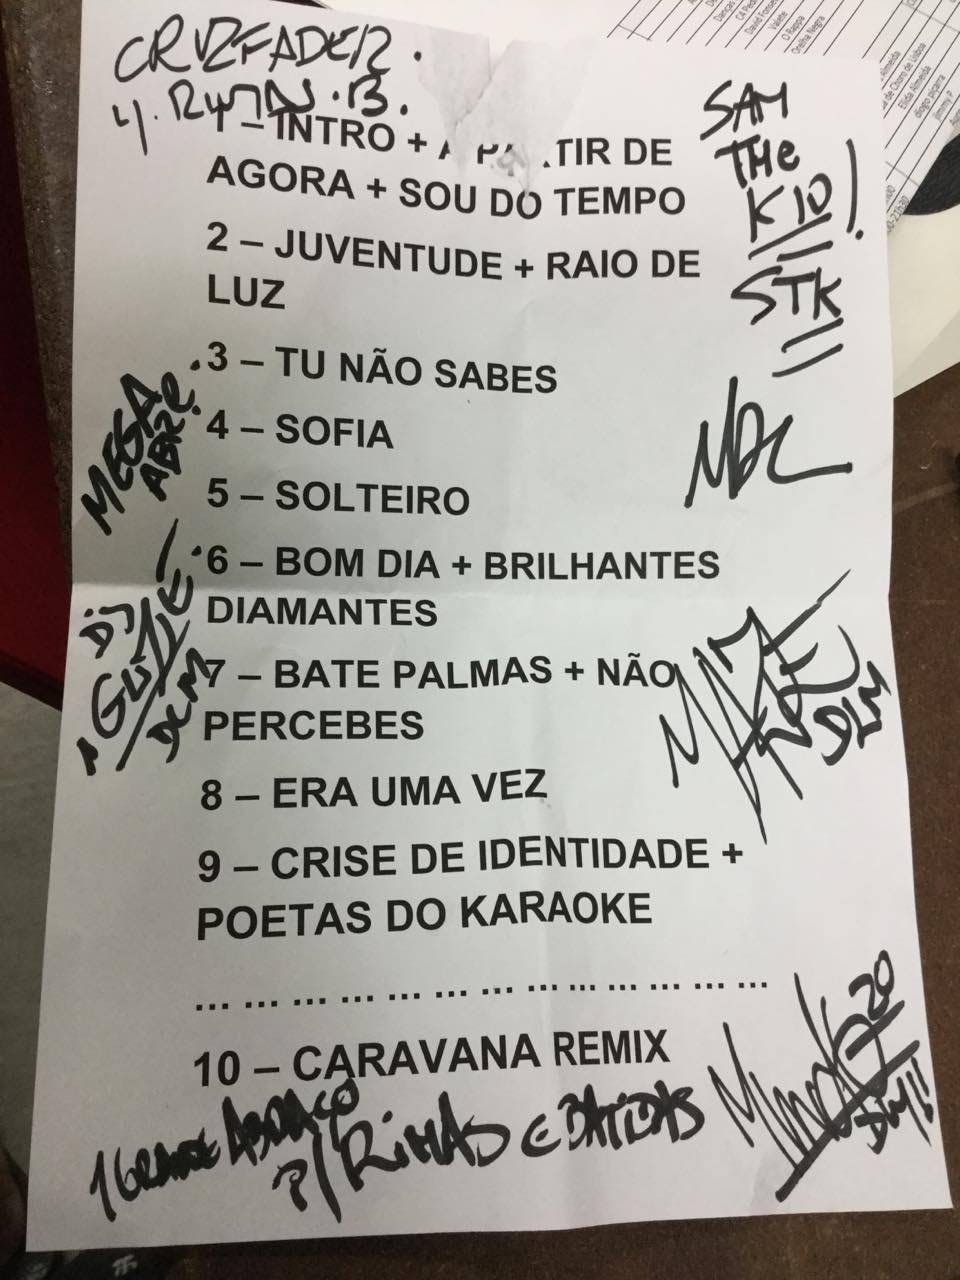 CRUZFADER.
RYTA.B.
1 – INTRO + A PARTIR DE
AGORA + SOU DO TEMPO
2 – JUVENTUDE + RAIO DE
LUZ
3 – TU NÃO SABES
4 – SOFIA
5 – SOLTEIRO
6 – BOM DIA + BRILHANTES
DIAMANTES
7 – BATE PALMAS + NÃO
PERCEBES
8 – ERA UMA VEZ
9 – CRISE DE IDENTIDADE +
POETAS DO KARAOKE
... ... ... ... ... ... ... ... ... ... ... ...
10 – CARAVANA REMIX
1 GRANDE ABRAÇO
P/ RIMAS E BATIDAS
SAM
THE
KID!
STK
MDC
DLM
MEGA
DJ
DLM
Valete
O Rappa
Orelha Negra
Elida Almeida
diogo piçarra
jimmy P